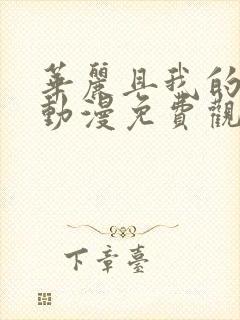 華麗且我的
動漫免費觀
下章臺